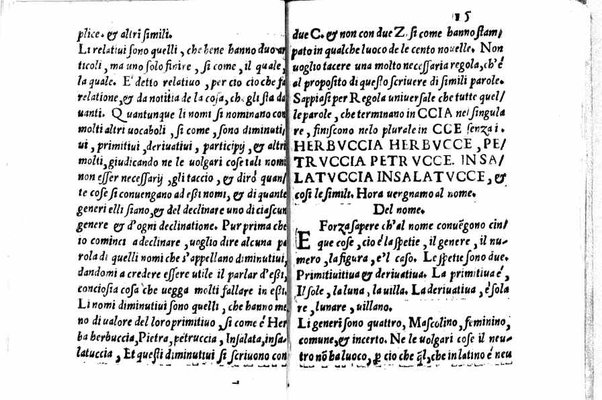 plice. et altri simili.
Li relatiui sono quelli, che bene hanno duo ar
ticoli, ma uno solo finire, si come, il quale,
la quale. E' detto relatiuo, per cio cio che fa
relatione, et da notitia de la cosa, ch. gli sta da
uanti. Quantunque li nomi si nominano con
molti altri uocaboli, si come sono, diminuti
ui, primitiui, deriuatiui, participij, et altri
molti, giudicando ne le uolgari cose tali nomi
non esser necessarij, gli taccio, et diro quan
te cose si conuengano ad esti nomi, et di quante
generi elli siano, et del declinare uno di ciascun
genere et d'ogni declinatione. Pur prima che
io cominci a declinare, uoglio dire alcuna pa
rola di quelli nomi che s'appellano diminutiui,
dandomi a credere essere utile il parlar d'esti,
conciosia cosa che uegga molti fallare in esti.
Li nomi diminutiui sono quelli, che hanno me
no di ualore del loro primitiuo, si come é Her
ba herbuccia, Pietra, petruccia, Insalata, insa
latuccia, Et questi diminutiui si scriuono con
15
due C. et non con due Z. si come hanno stam
pato in qualche luoco de le cento nouelle. Non
uoglio tacere una molto necessaria regola, ch'é
al proposito di questo scriuere di simili parole.
Sappiasi per Regola uniuersale che tutte quel
le parole, che terminano in CCIA nel singula
re, finiscono nelo plurale in CCE senza i.
HERBVCCIA HERBVCCE, PE
TRVCCIA PETRVCCE. INSA
LATVCCIA INSALATVCCE, et
cosi le simili. Hora uergnamo al nome.
Del nome.
E Forza sapere ch'al nome conuēgono cin
que cose, cio é la spetie, il genere, il nu
mero, la figura, e'l caso. Le spetie sono due.
Primitiuitiua et deriuatiua. La primatiua é,
Il sole, la luna, la uilla. La deriuatiua, é sola
re, lunare, uillano.
Li generi sono quattro, Mascolino, feminino,
comune, et incerto. Ne le uolgari cose il neu
tro nō ha luoco, ꝑ cio che q̃l, che in latino é neu